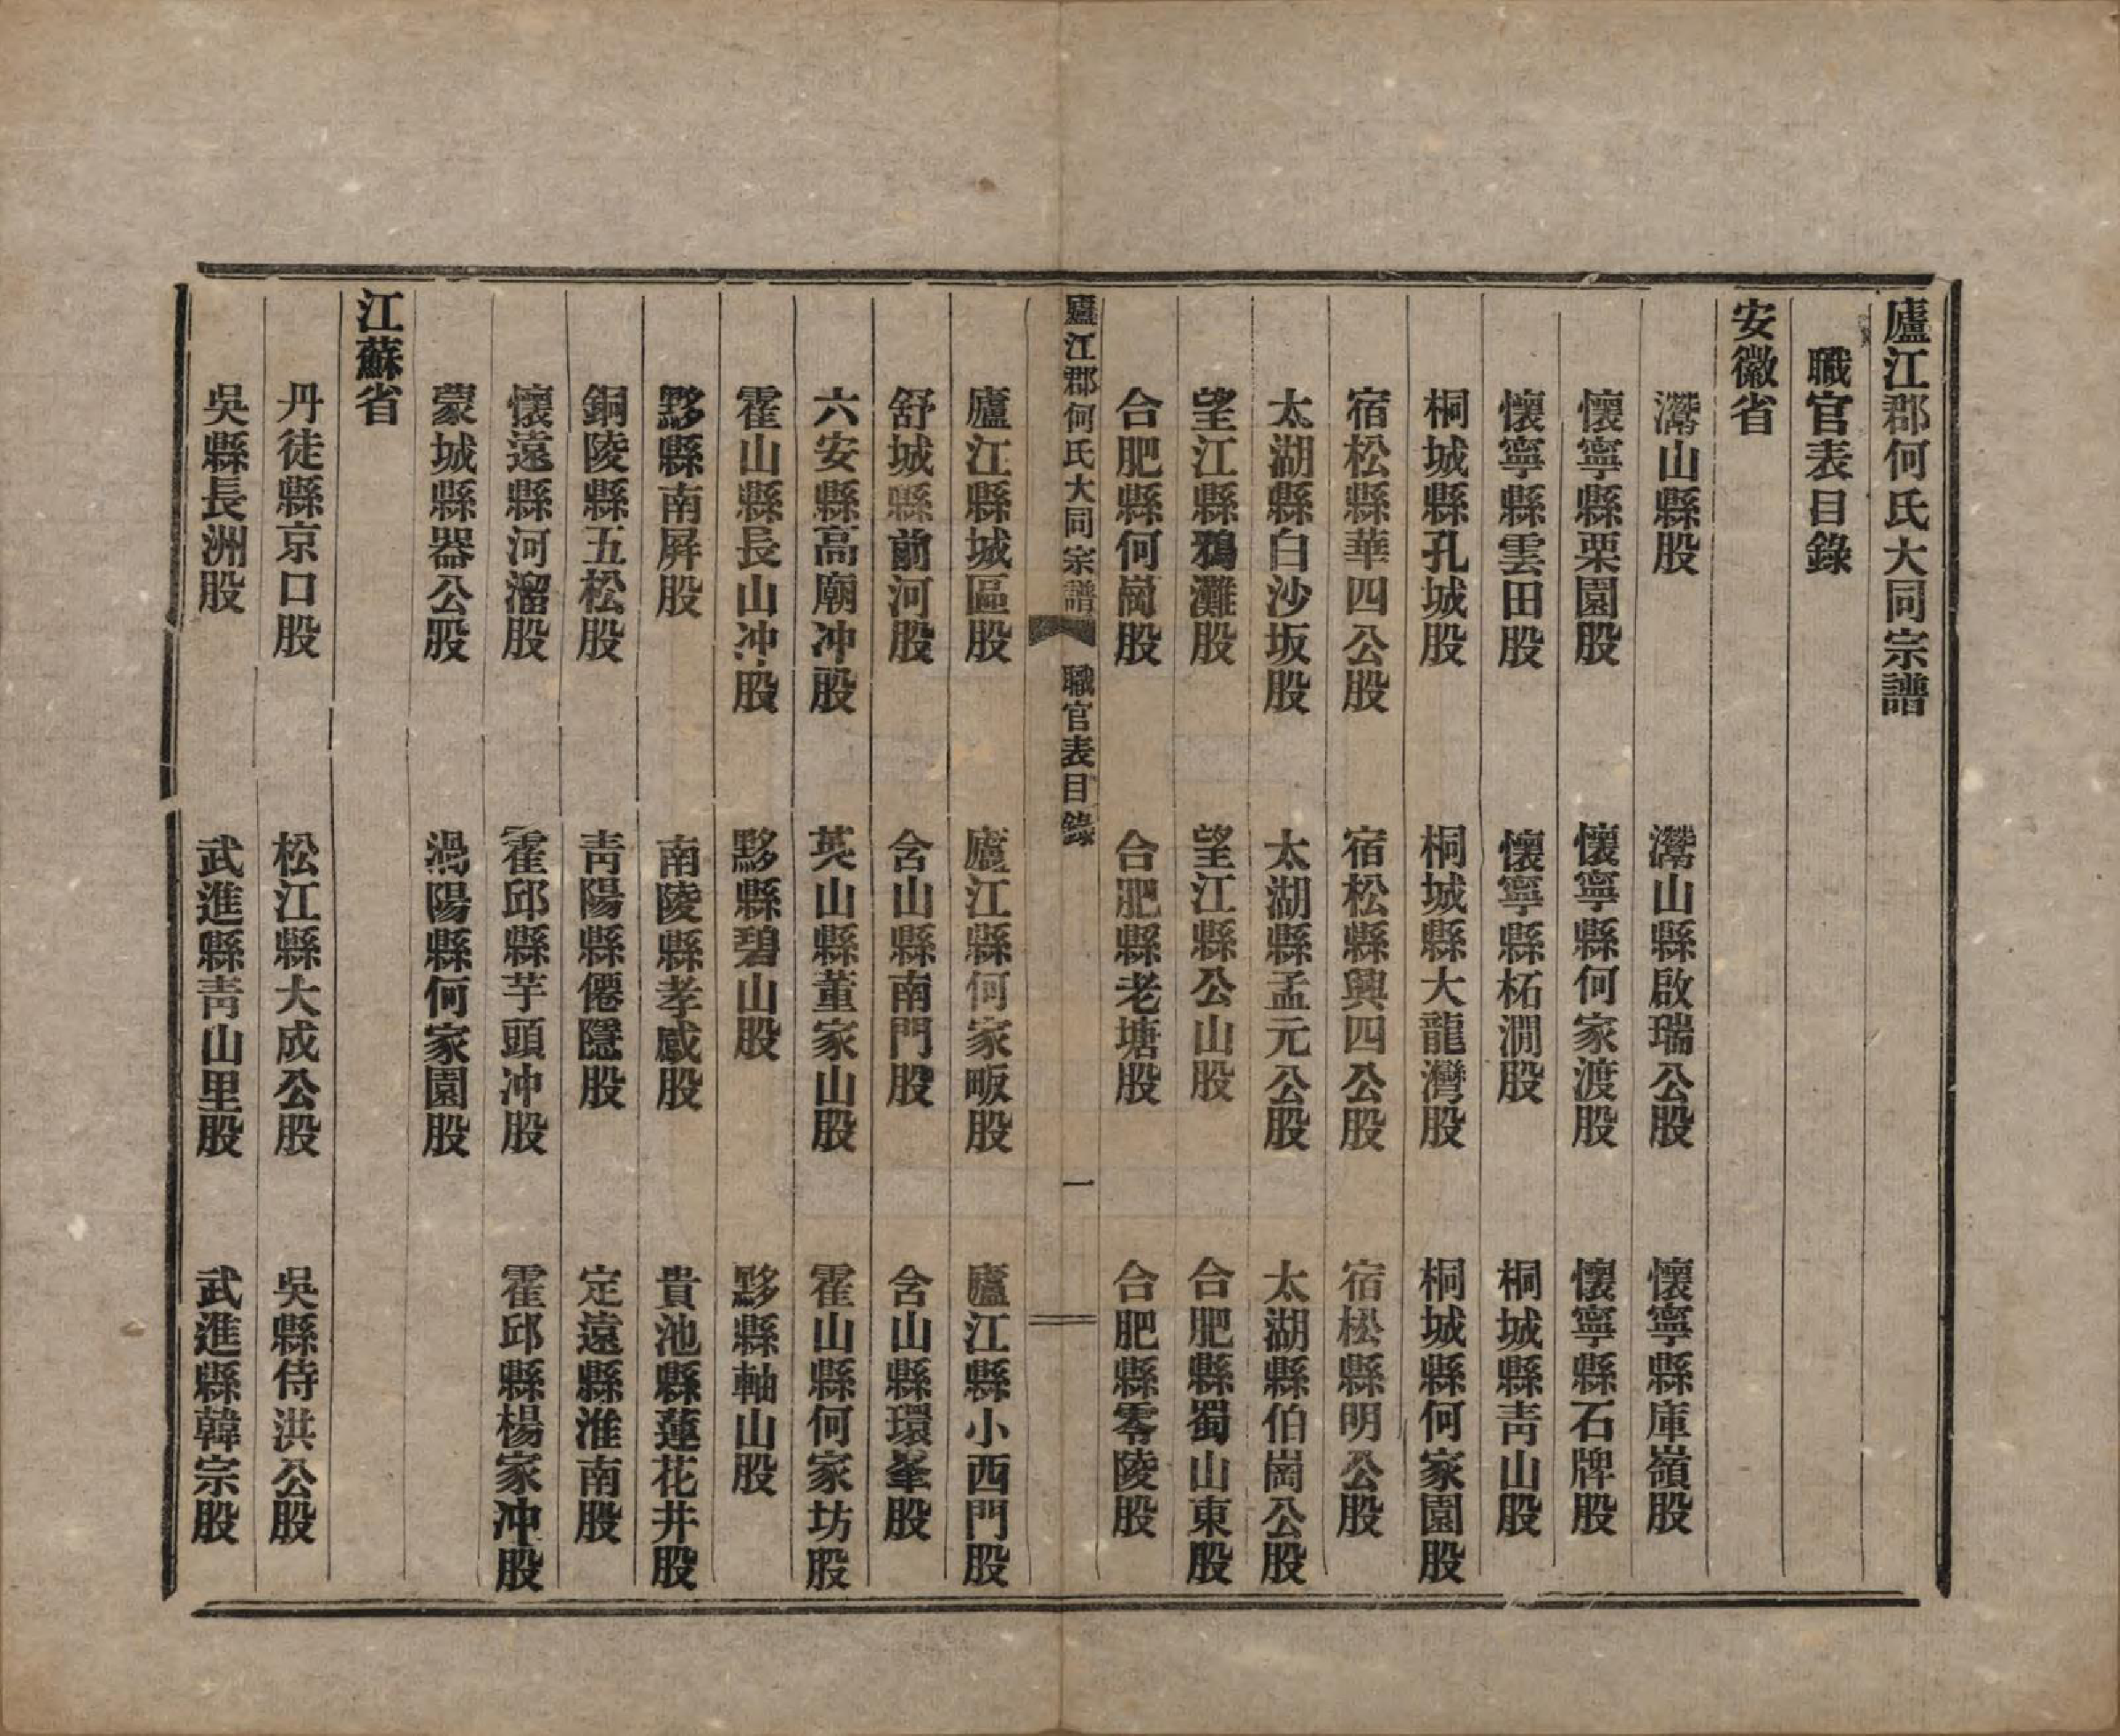 廬江郡何氏大同宗譜
職官表目錄
安徽省
灊山縣股　灊山縣啟瑞公股　懷寧縣庫嶺股
懷寧縣栗園股　懷寧縣何家渡股　懷寧縣石牌股
懷寧縣雲田股　懷寧縣柘澗股　桐城縣青山股
桐城縣孔城股　桐城縣大龍灣股　桐城縣何家園股
宿松縣華四公股　宿松縣興四公股　宿松縣明公股
太湖縣白沙坂股　太湖縣孟元公股　太湖縣伯崗公股
望江縣鴉灘股　望江縣公山股　合肥縣蜀山東股
合肥縣何崗股　合肥縣老塘股　合肥縣零陵股
廬江郡何氏大同宗譜　職官表目錄　一
廬江縣城區股　廬江縣何家畈股　廬江縣小西門股
舒城縣前河股　含山縣南門股　含山縣環峯股
六安縣高廟冲股　英山縣董家山股　霍山縣何家坊股
霍山縣長山冲股　黟縣碧山股　黟縣軸山股
黟縣南屏股　南陵縣孝感股　貴池縣蓮花井股
銅陵縣五松股　青陽縣僊隱股　定遠縣淮南股
懷遠縣河溜股　霍邱縣芋頭冲股　霍邱縣楊家冲股
蒙城縣器公股　渦陽縣何家園股
江蘇省
丹徒縣京口股　松江縣大成公股　吳縣侍洪公股
吳縣長洲股　武進縣青山里股　武進縣韓宗股